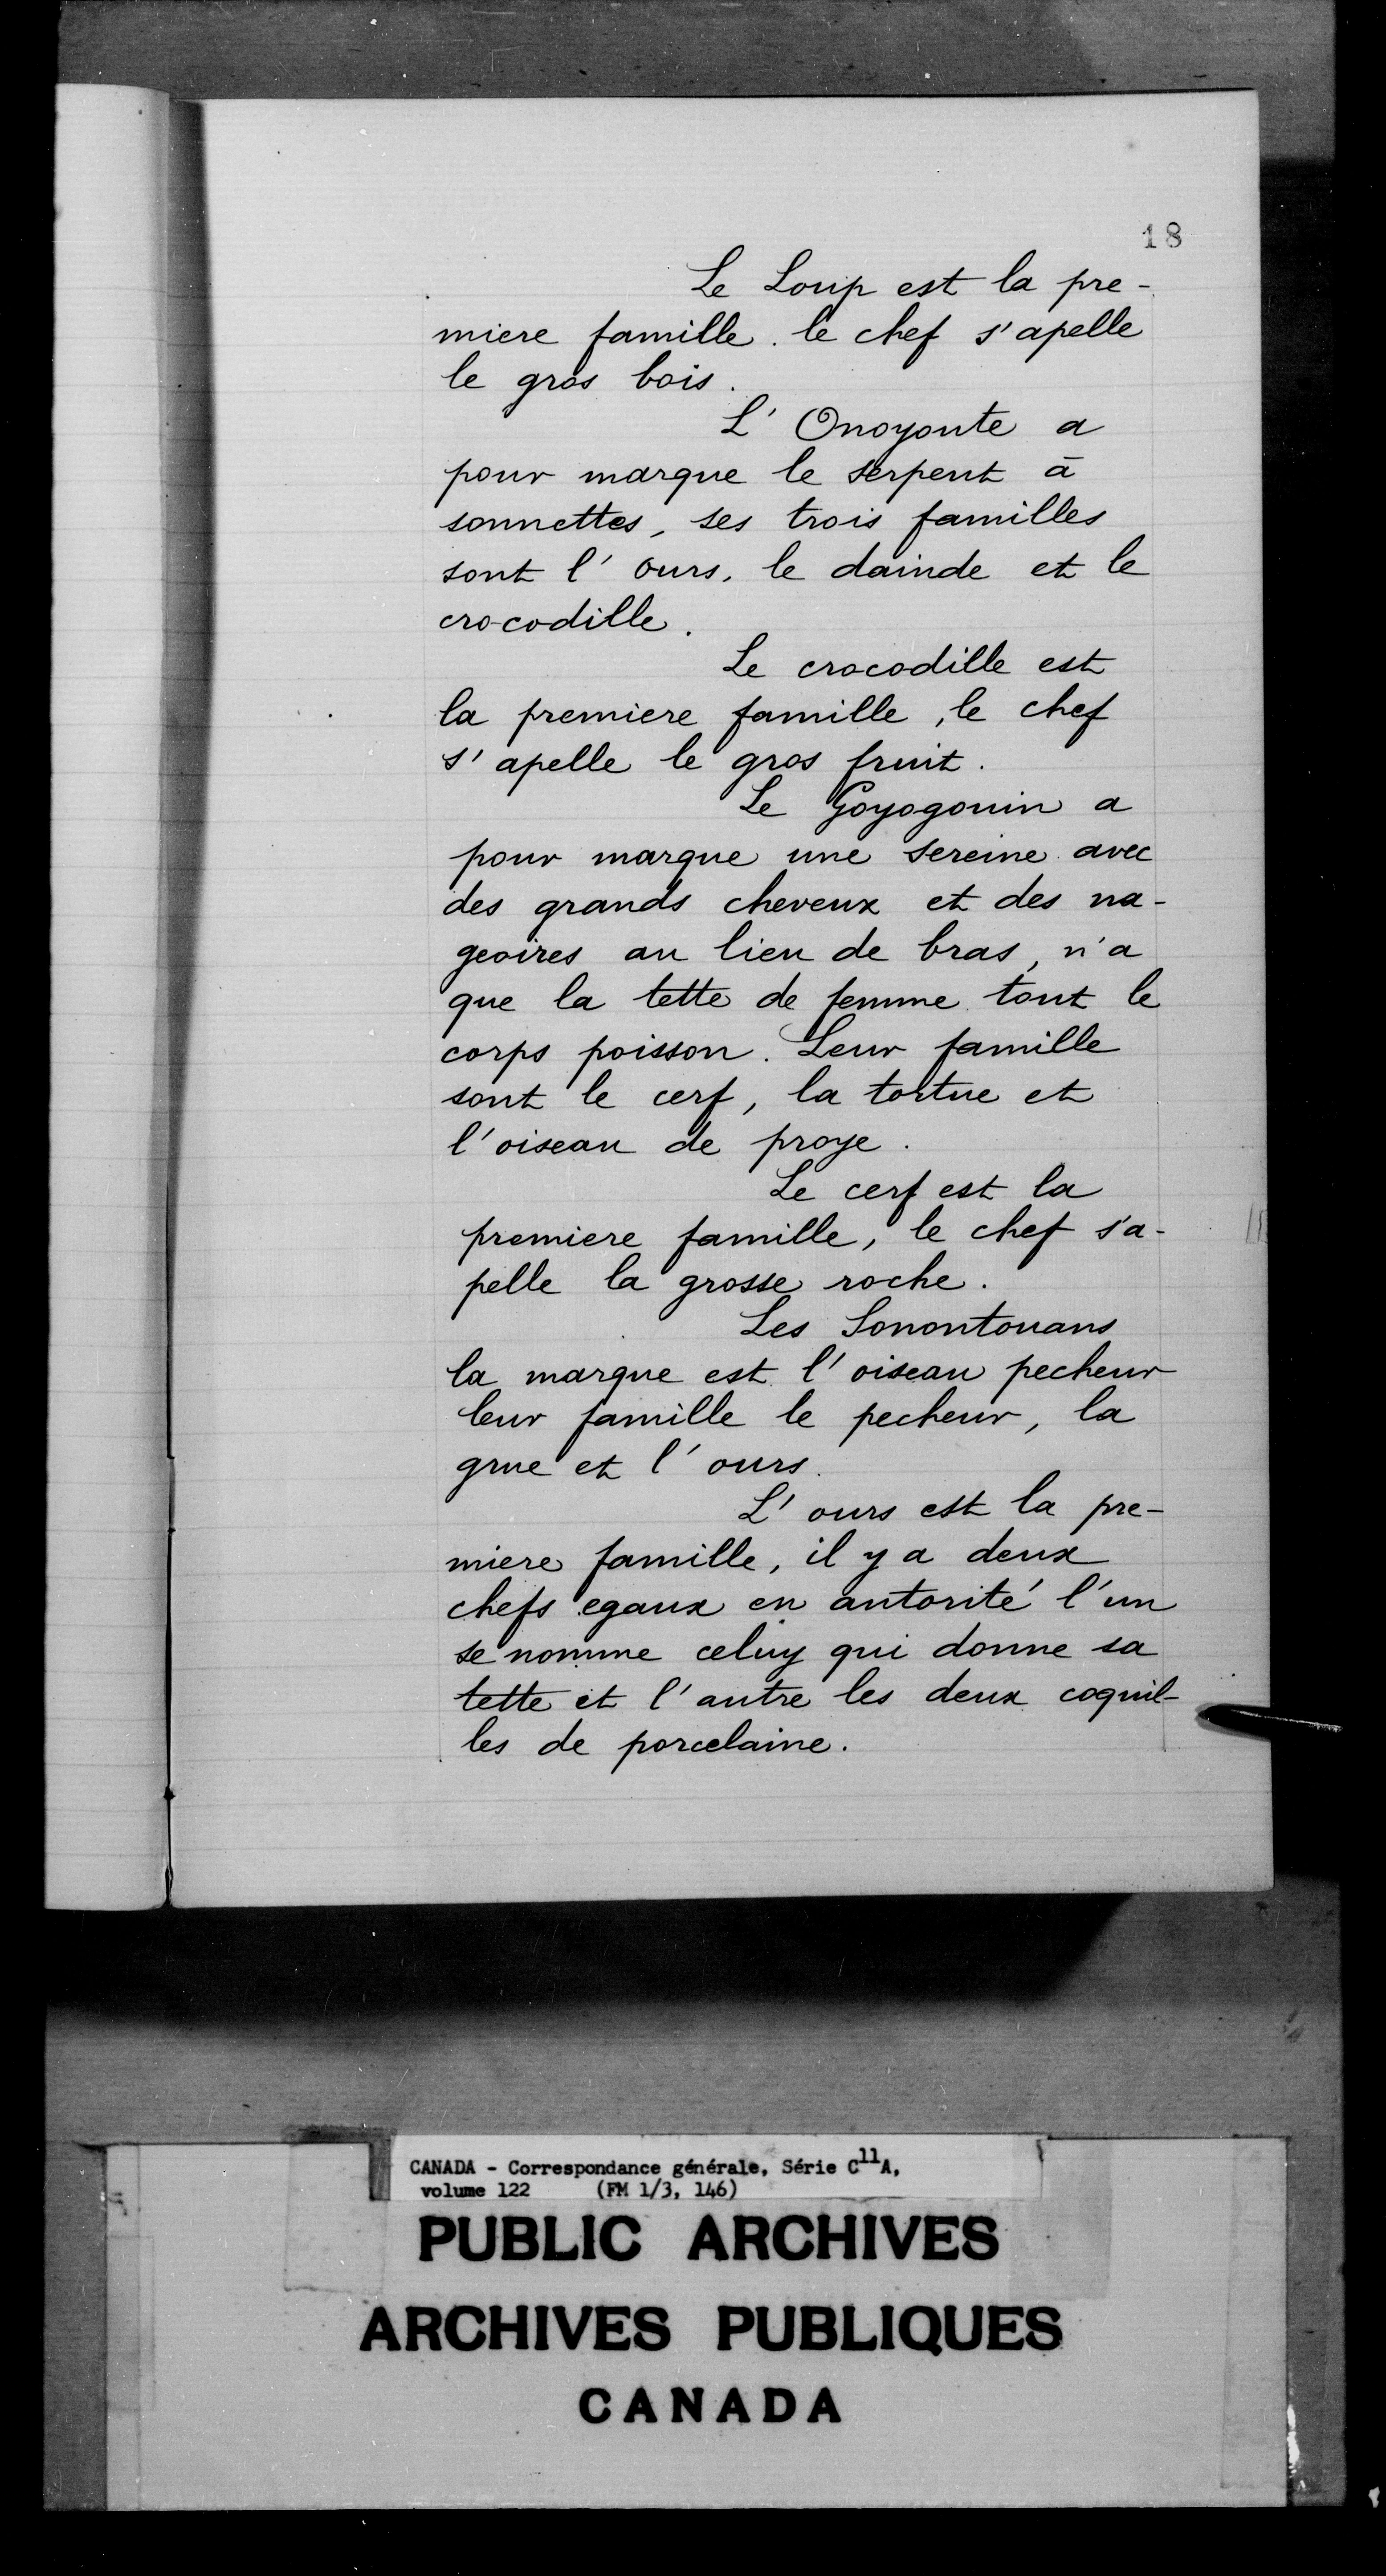 18
Le Loup est la pre-
miere famille. le chef s'apelle
le gros bois.
L' Onoyoute a
pour marque le serpent à
sonnettes, ses trois familles
sont l' ours, le dainde et le
crocodille.
Le crocodille est
la premiere famille, le chef
s' apelle le gros fruit.
Le Goyogouin a
pour marque une sereine avec
des grands cheveux et des na-
geoires au lieu de bras, n'a
que la tette de femme tout le
corps poisson. Leur famille
sont le cerf, la tortue et
l'oiseau de proye.
Le cerf est la
premiere famille, le chef s'a-
pelle la grosse roche.
Les Sonontouans
la marque est l' oiseau pecheur
leur famille le pecheur, la
grue et l' ours.
L' ours est la pre-
miere famille, il y a deux
chefs egaux en autorité l'un
se nomme celuy qui donne sa
tette et l'autre les deux coquil-
les de porcelaine.
CANADA - Correspondance générale, Série C11A,
volume 122 (FM 1/3, 146)
PUBLIC ARCHIVES
ARCHIVES PUBLIQUES
CANADA